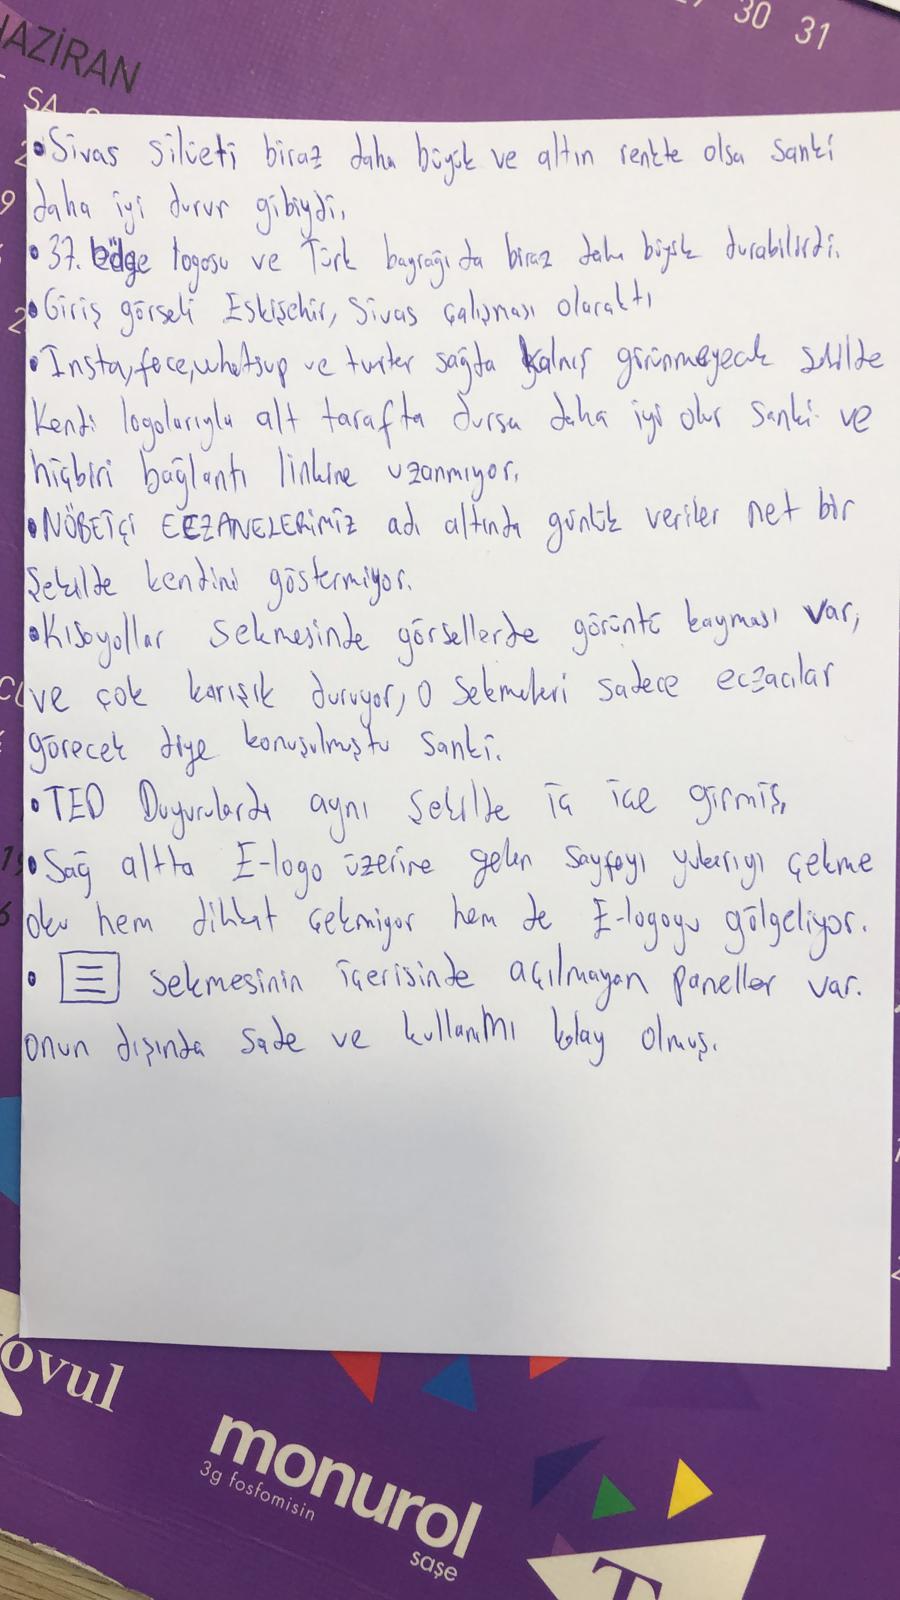 30 31
HAZİRAN
SA
• Sivas silüeti biraz daha büyük ve altın renkte olsa sanki
daha iyi durur gibiydi,
• 37. bölge logosu ve Türk bayrağı da biraz daha büyük durabilirdi.
• Giriş görseli Eskişehir, Sivas çalışması olaraktı
• Insta, fece, whatsup ve twıter sağda kalmış görünmeyecek şekilde
Kendi logolarıyla alt tarafta dursa daha iyi olur sanki ve
hiçbiri bağlantı linkine uzanmıyor.
• NÖBETÇİ ECZANELERİMİZ adı altında günlük veriler net bir
Şekilde kendini göstermiyor.
• Kısayollar sekmesinde görsellerde görüntü kayması var,
ve çok karışık duruyor, o sekmeleri sadece eczacılar
görecek diye konuşulmuştu sanki.
• TED Duyurularda aynı şekilde iç içe girmiş,
• Sağ altta E-logo üzerine gelen sayfayı yukarıyı çekme
oku hem dikkat çekmiyor hem de E-logoyu gölgeliyor.
• sekmesinin içerisinde açılmayan paneller var.
onun dışında sade ve kullanımı kolay olmuş.
ovul
monurol
3g fosfomisin
saşe
T